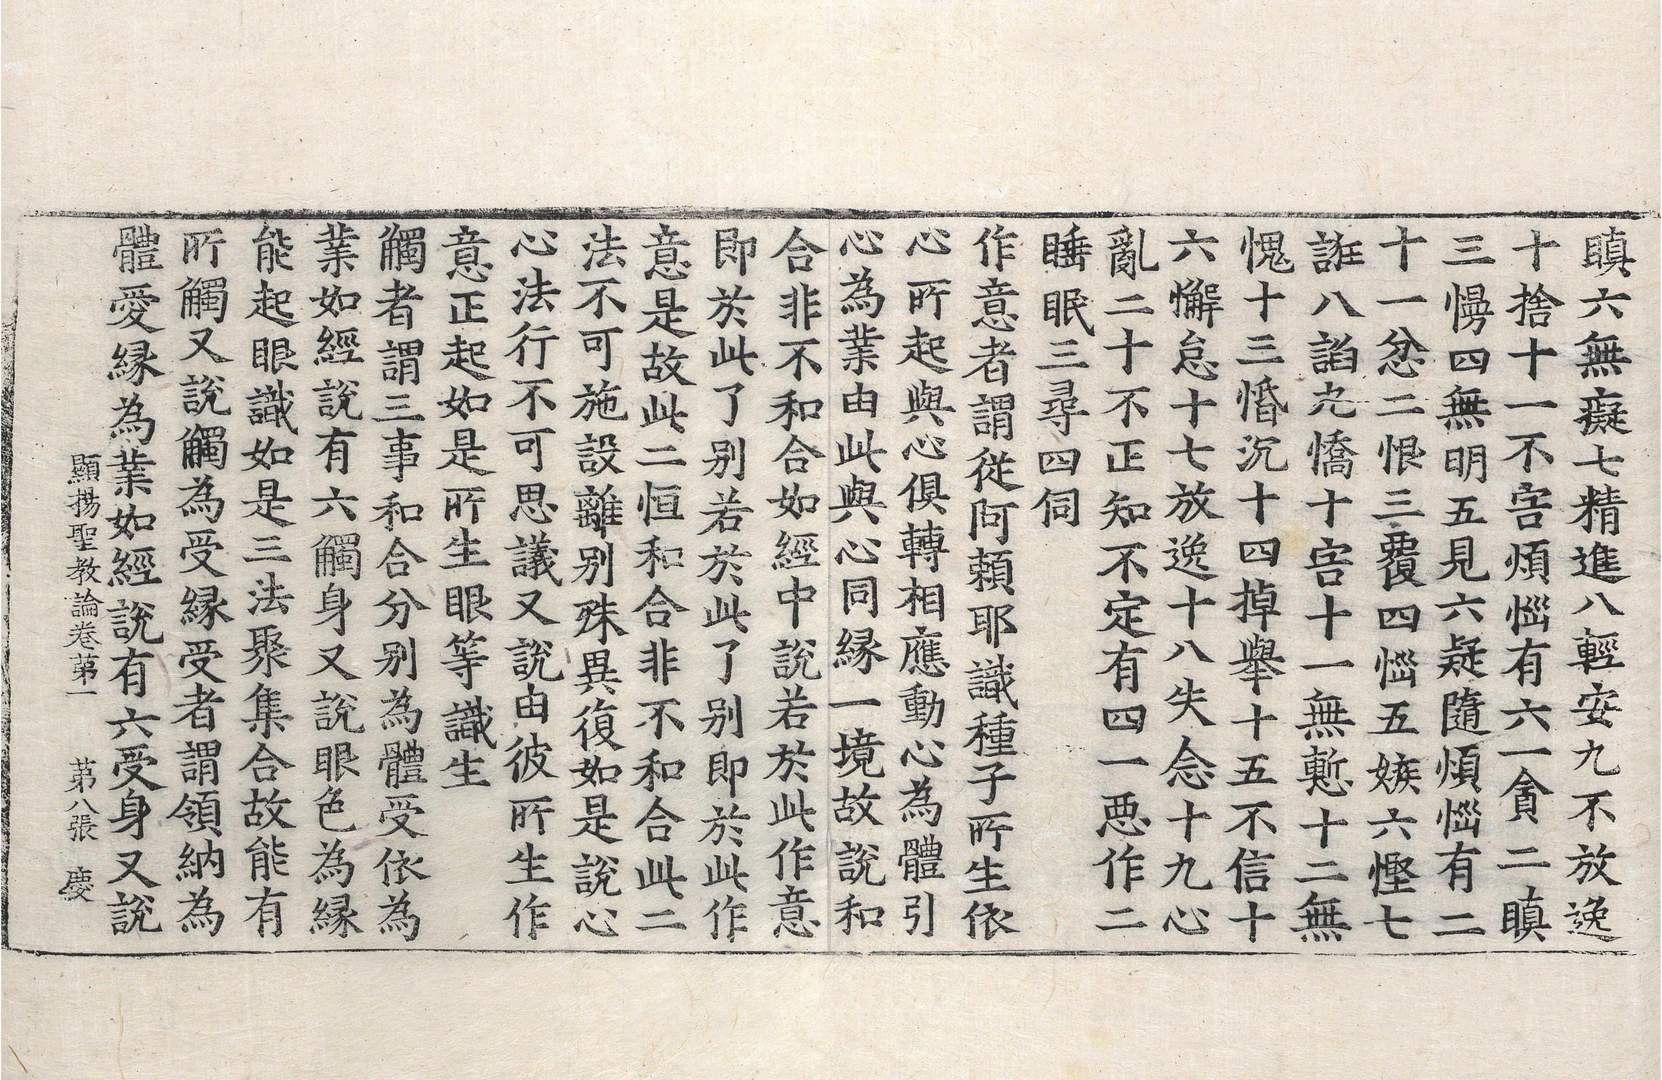 瞋六無癡七精進八輕安九不放逸
十捨十一不害煩惱有六一貪二瞋
三慢四無明五見六疑隨煩惱有二
十一忿二恨三覆四惱五嫉六慳七
誑八諂九憍十害十一無慙十二無
愧十三惛沉十四掉舉十五不信十
六懈怠十七放逸十八失念十九心
亂二十不正知不定有四一悪作二
睡眠三尋四伺
作意者謂從阿賴耶識種子所生依
心所起與心俱轉相應動心為體引
心為業由此與心同緣一境故說和
合非不和合如經中說若於此作意
即於此了別若於此了別即於此作
意是故此二恒和合非不和合此二
法不可施設離別殊異復如是說心
心法行不可思議又說由彼所生作
意正起如是所生眼等識生
觸者謂三事和合分別為體受依為
業如經說有六觸身又說眼色為緣
能起眼識如是三法聚集合故能有
所觸又說觸為受緣受者謂領納為
體愛緣為業如經說有六受身又說
顯揚聖教論卷第一　第八張　慶